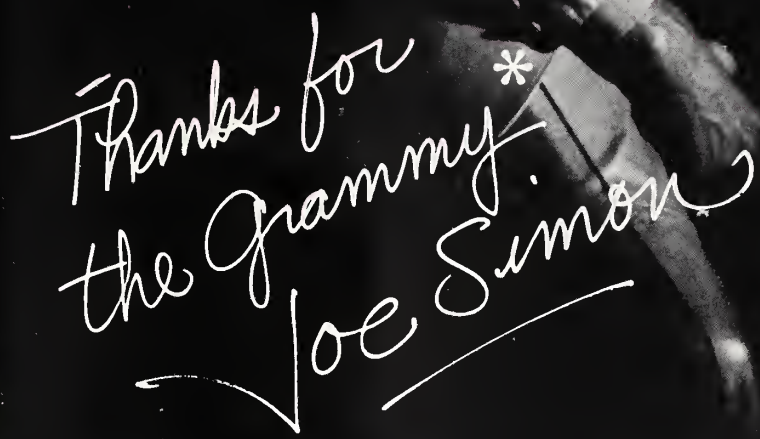 Thanks for
the Grammy*
Joe Simon